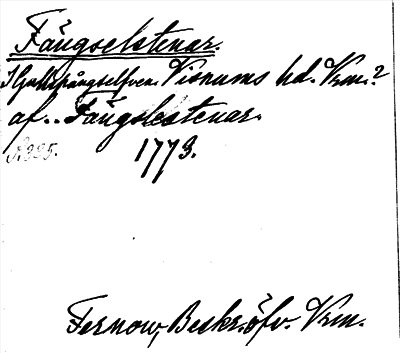 Fångselstenar.
I Gullspångselfven. Visnums hd. Vrm.?
af.. Fångelstenar.
S. 325. 1773.
Fernow, Beskr. öfv. Vrm.